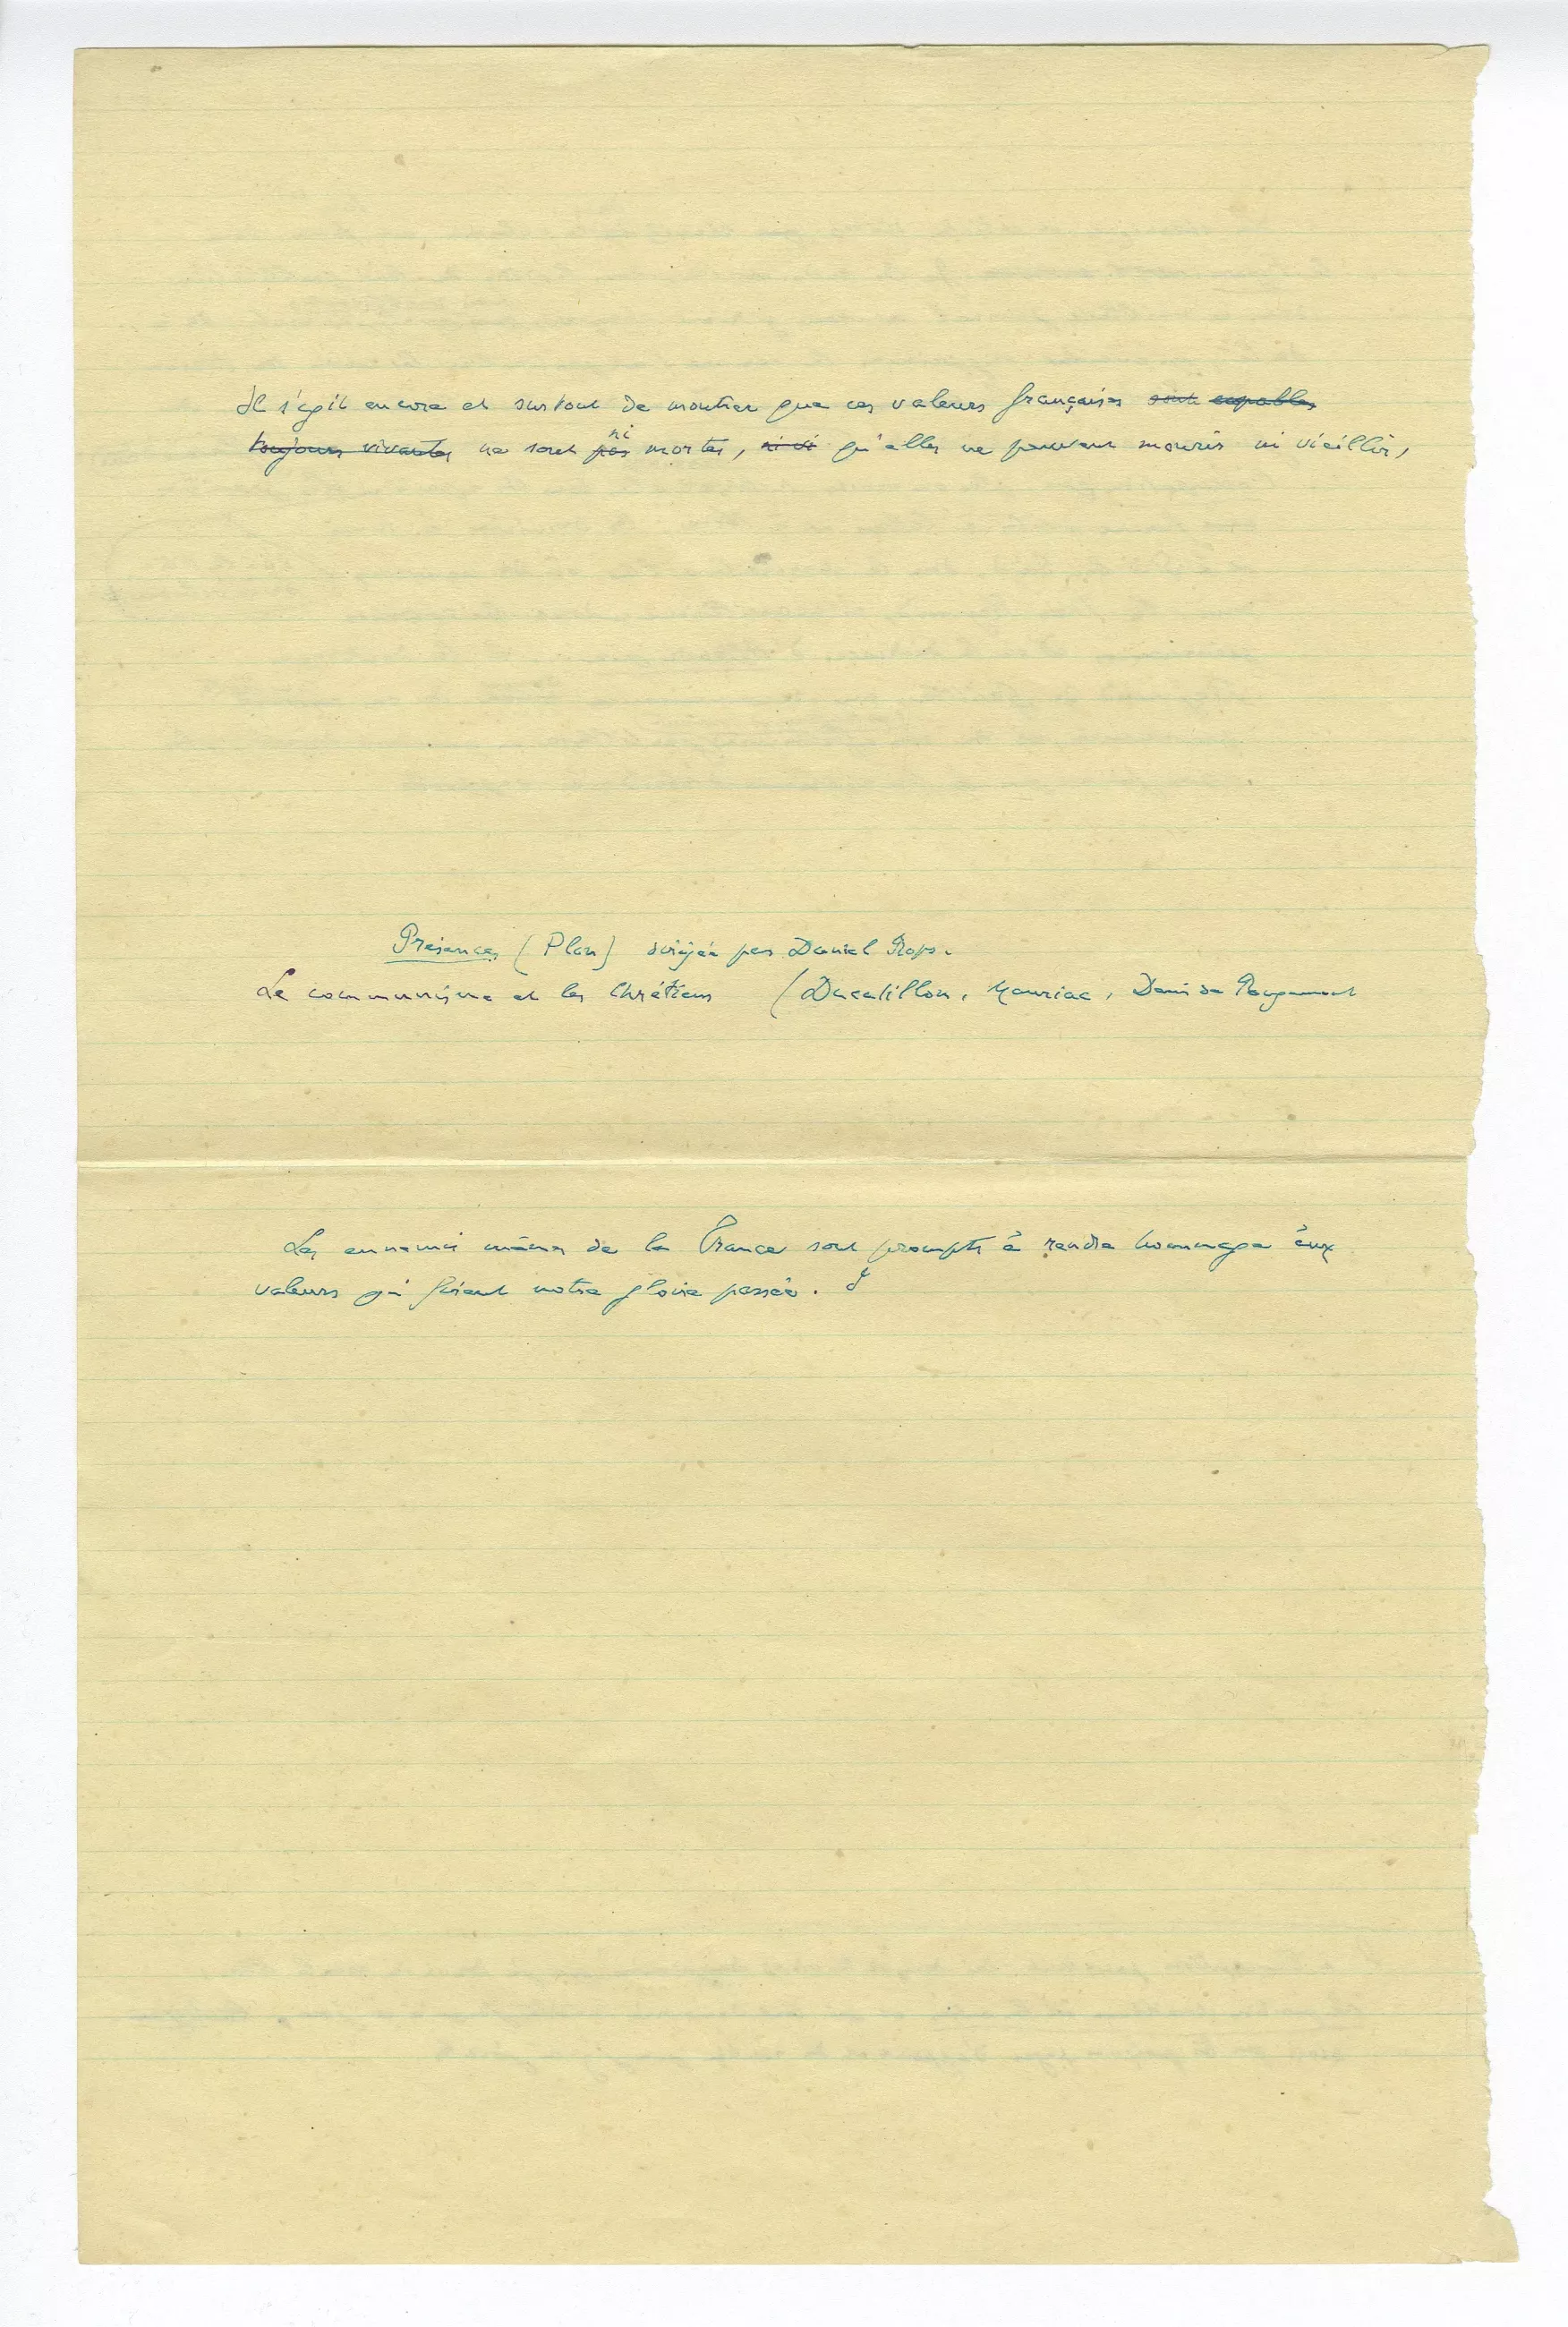 Il s'agit encore et surtout de montrer que ces valeurs françaises sont capables
toujours vivantes ne sont pas ni mortes, ni vi qu'elles ne peuvent mourir ni vieillir,
Présences (Plon) dirigée par Daniel Rops.
Le communisme et les Chrétiens (Ducatillon, Mauriac, Denis de Rougemont
Les ennemis mêmes de la France sont prompts à rendre hommage aux
valeurs qui firent notre gloire passée.